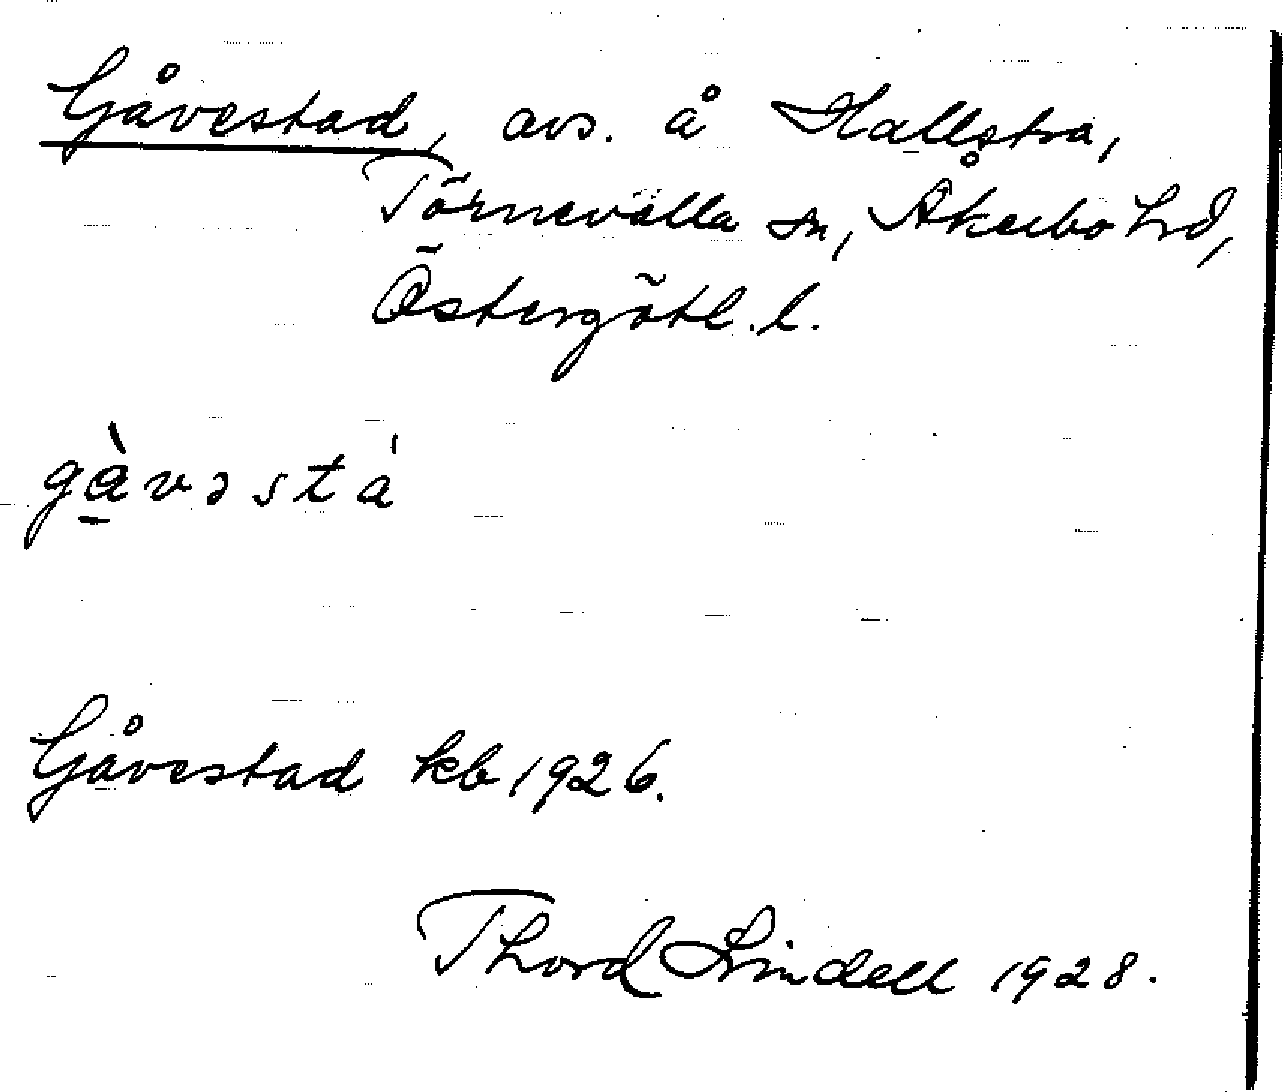 Gåvestad, avs. å Hallstra,
Törnevalla sn, Åkerbo hd,
Östergötl. l.
gàvəstá
Gåvestad kb 1926.
Thord Lindell 1928.